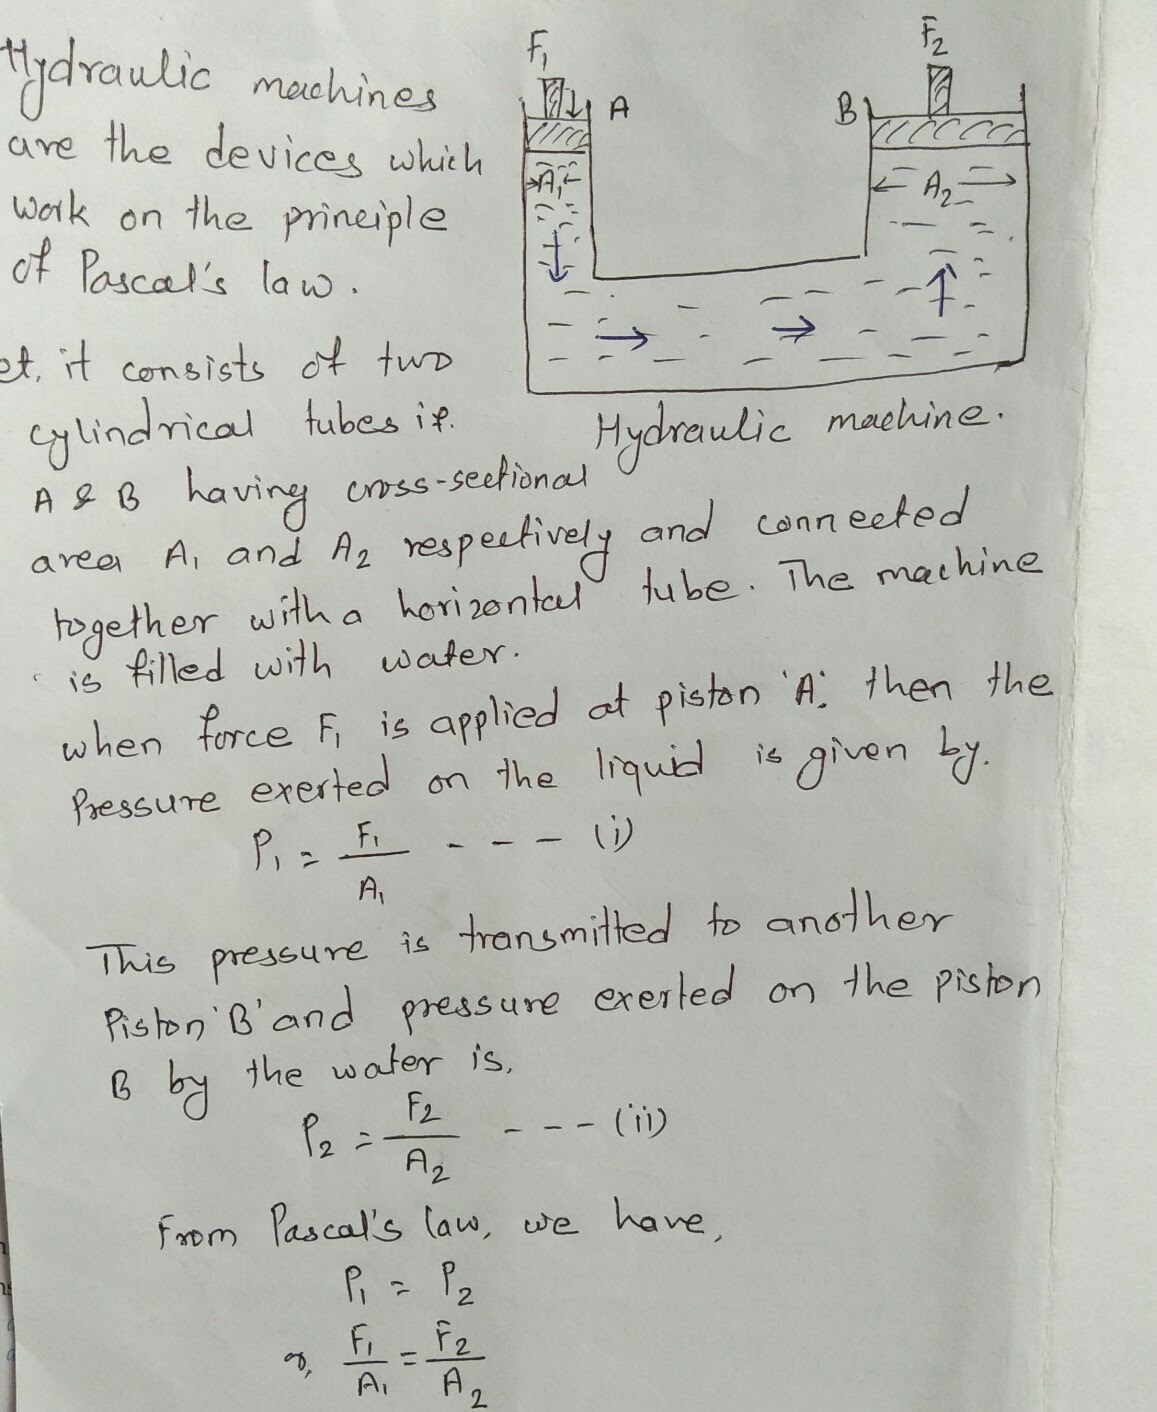 Hydraulic machines
are the devices which
work on the principle
of Pascal's law.
F₁
A
F₂
B
A₁
A₂
Hydraulic machine.
et, it consists of two
cylindrical tubes ie.
A & B having cross-sectional
area A₁ and A₂ respectively and connected
together with a horizontal tube. The machine
is filled with water.
when force F₁ is applied at piston 'A', then the
Pressure exerted on the liquid is given by.
P₁ = F₁/A₁ - - - - (i)
This pressure is transmitted to another
Piston 'B' and pressure exerted on the piston
B by the water is,
P₂ = F₂/A₂ - - - - (ii)
From Pascal's law, we have,
P₁ = P₂
or, F₁/A₁ = F₂/A₂